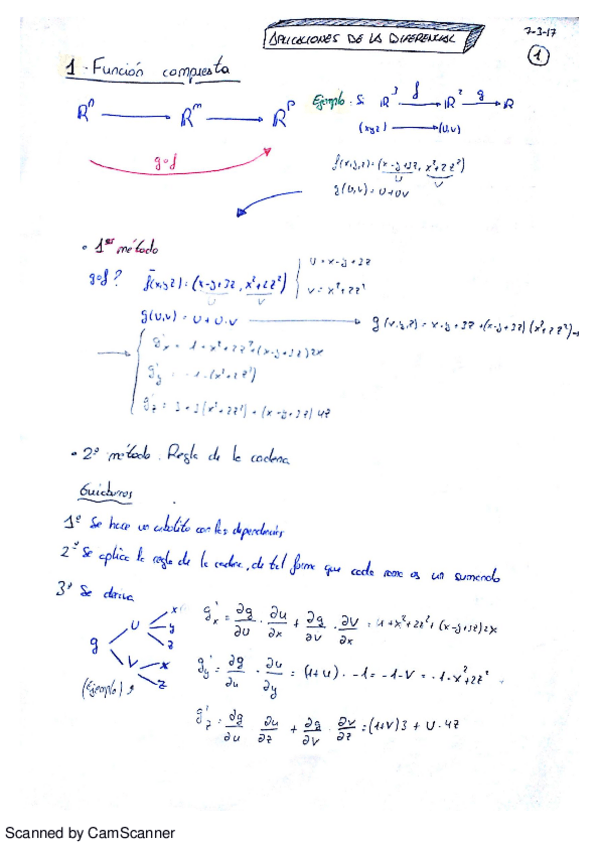 APLICACIONES DE LA DIFERENCIAL
7-3-17
1
1. Función compuesta
Rⁿ → Rᵐ → Rᵖ
g∘f
Ejemplo. Si R³ →f R² →g R
(xyz) → (u,v)
f(x,y,z)=(x-y+3z, x²+2z²)
u v
g(u,v)=u+uv
• 1er método
g∘f? f(xyz)=(x-y+3z, x²+2z²)
u v
u=x-y+3z
v=x²+2z²
g(u,v)=u+u.v → g(x,y,z)=x-y+3z+(x-y+3z)(x²+2z²)→
→ g'x = 1+x²+2z²+(x-y+3z)2x
g'y = -1-(x²+2z²)
g'z = 3+3(x²+2z²)+(x-y+3z)4z
• 2º método. Regla de la cadena
1º Se hace un arbolito con las dependencias
2º Se aplica la regla de la cadena, de tal forma que cada rama es un sumando
3º Se deriva
g u x y z
v x z
(Ejemplo)
g'x = ∂g/∂u · ∂u/∂x + ∂g/∂v · ∂v/∂x = 1+x²+2z²+(x-y+3z)2x
g'y = ∂g/∂u · ∂u/∂y = (1+u)·-1=-1-v=-1-x²+2z²
g'z = ∂g/∂u ∂u/∂z + ∂g/∂v ∂v/∂z = (1+v)3+u·4z
Scanned by CamScanner